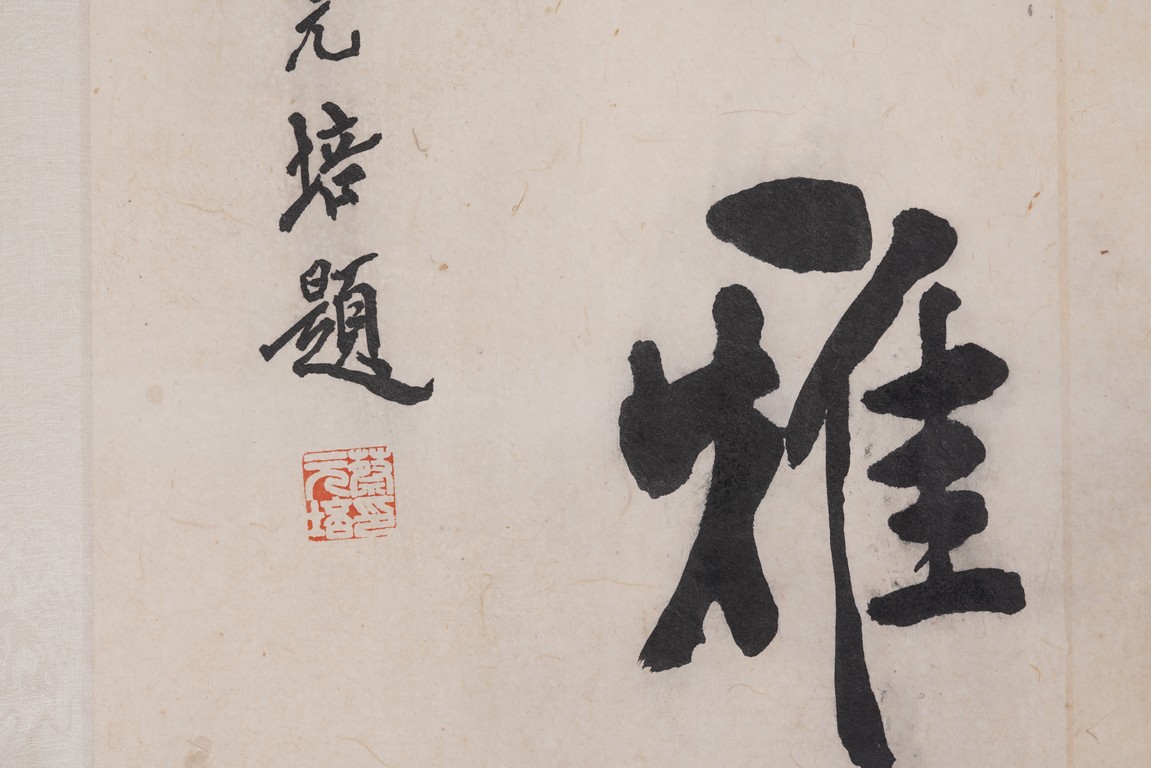 雅
元培題
蔡印
元培